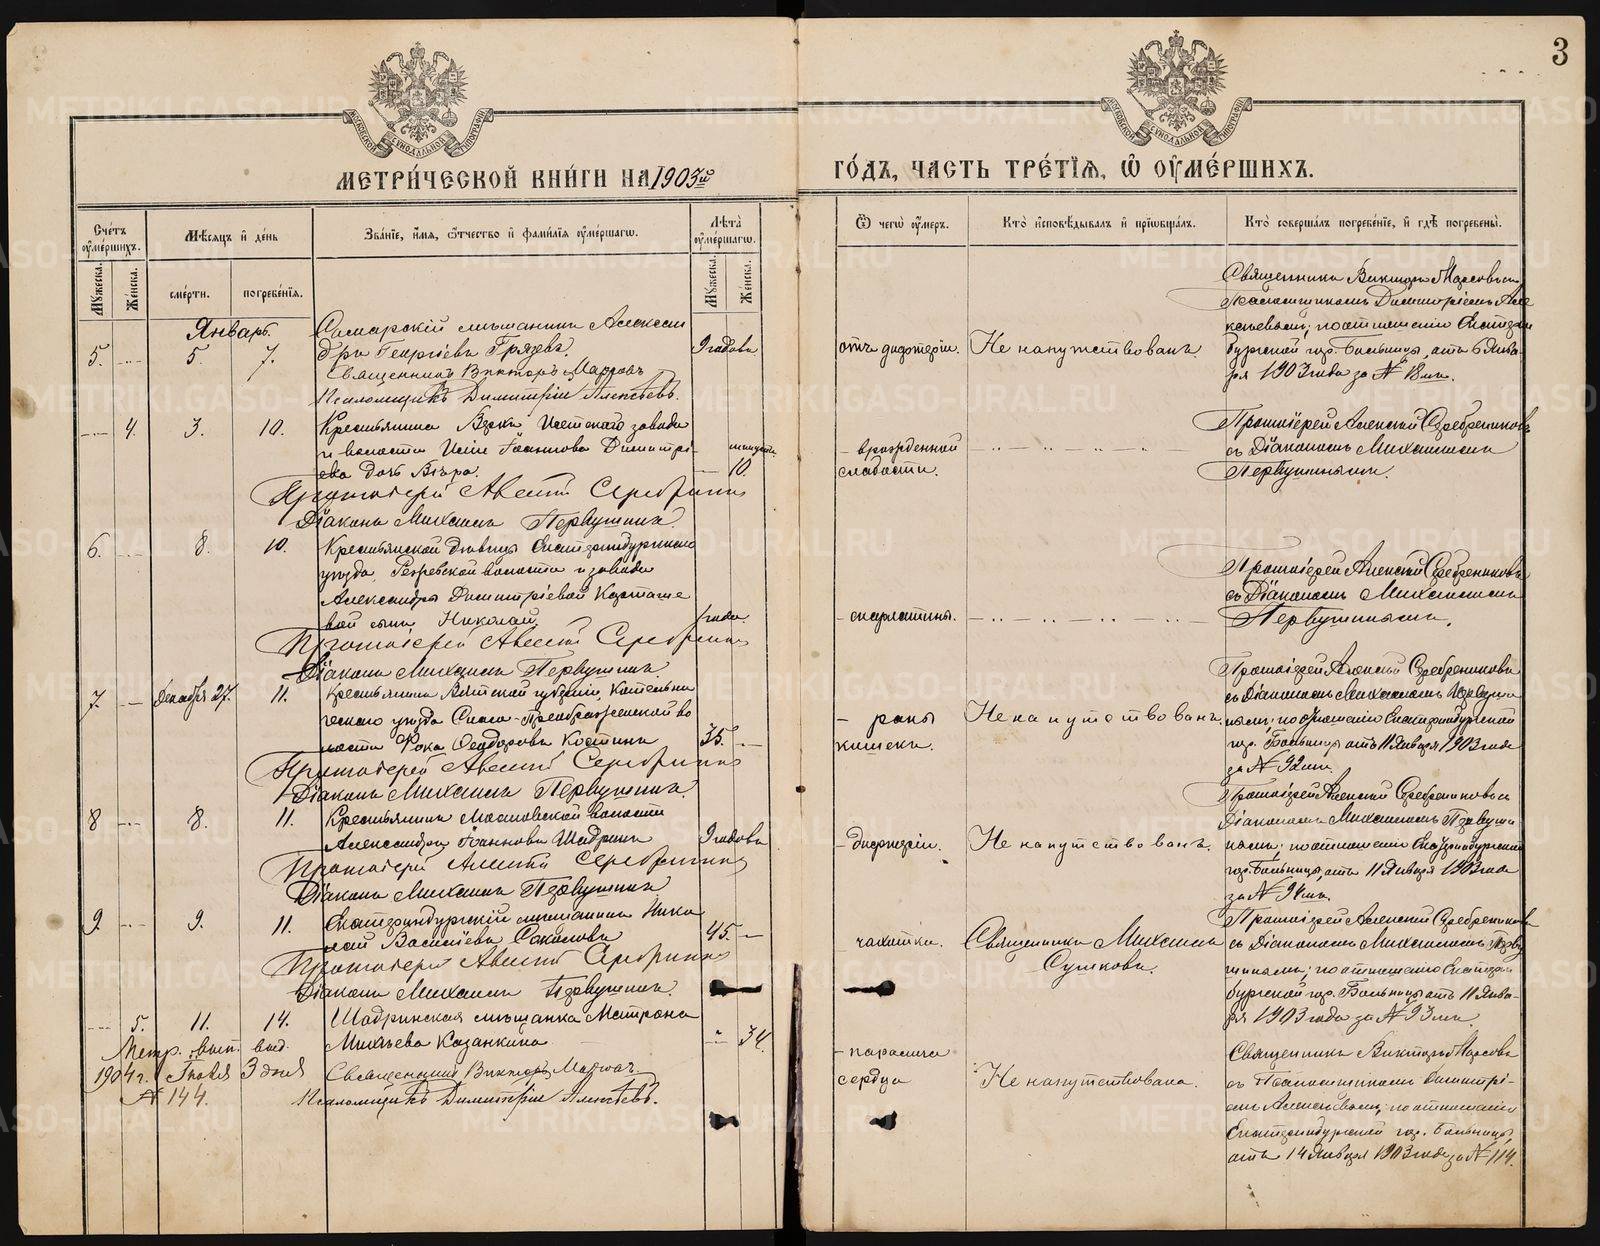 3
МЕТРИ́ЧЕСКОЙ КНИ́ГИ НА 1903й
ГО́ДЪ, ЧАСТЬ ТРЕ́ТІѦ, Ѡ ОУМЕ́РШИХЪ.
Сче́тъ оуме́ршихъ.
Му́жеска.
Же́нска.
Мѣ́сяцъ и де́нь
сме́рти.
погребе́нія.
Зва́ніе, и́мя, о́тчество и фами́лія оуме́ршагѡ.
Лѣта̀ оуме́ршагѡ.
Му́жеска.
Же́нска.
Ѿ чегѡ̀ оу́меръ.
Кто̀ исповѣ́дывалъ и пріѡбща́лъ.
Кто̀ соверша́лъ погребе́ніе, и гдѣ̀ погребены̀.
Январь.
5. 5. 7.
Самарскій мѣщанинъ Александръ Георгіевъ Грязевъ.
Священникъ Викторъ
Псаломщикъ Димитрій Алексѣевъ.
9 годовъ
отъ дифтеріи.
Не напутствованъ.
Священникъ Викторъ
Псаломщикомъ Димитріемъ Алексѣевымъ; по отношенію Екатеринбургской гор. Больницы, отъ 6 Января 1903 года за № 18мъ.
4. 3. 10.
Крестьянина
Исетского завода
и волости
Іоаннова Димитріева дочь Вѣра.
Протоіерей
Діаконъ Михаилъ Первушинъ.
минутъ 10.
врожденной слабости.
Протоіерей Алексій Серебренниковъ
съ Діакономъ Михаиломъ
Первушинымъ.
6. 8. 10.
Крестьянской дѣвицы Екатеринбургскаго
уѣзда, Режевской волости и завода
Александры Димитріевой
сынъ Николай.
Протоіерей
Діаконъ Михаилъ Первушинъ
1 года.
скарлатины.
Протоіерей Алексій Серебренниковъ
съ Діакономъ Михаиломъ
Первушинымъ.
7. Декабря 27. 11.
Крестьянинъ Вятской губерніи, Котельническаго уѣзда Спасо-Преображенской волости Фока Ѳеодоровъ Костинъ
Протоіерей
Діаконъ Михаилъ Первушинъ.
35.
раны кишекъ.
Не напутствованъ.
Протоіерей Алексій Серебренниковъ
съ Діакономъ Михаиломъ Первушинымъ; по отношенію Екатеринбургской
гор. Больницы отъ 11 Января 1903 года
за № 92мъ.
8 8. 11.
Крестьянинъ
волости
Александръ Іоанновъ Шадринъ
Протоіерей
Діаконъ Михаилъ Первушинъ
9 годовъ
дифтеріи.
Не напутствованъ.
Протоіерей Алексій Серебренниковъ съ
Діакономъ Михаиломъ Первушинымъ; по отношенію Екатеринбургской
гор. Больницы, отъ 11 Января 1903 года
за № 94мъ.
9. 9. 11.
Екатеринбургскій мѣщанинъ Николай Васильевъ Соколовъ
Протоіерей
Діаконъ Михаилъ Первушинъ.
45.
чахотки.
Священникъ Михаилъ
Сушковъ.
Протоіерей Алексій Серебренниковъ
съ Діакономъ Михаиломъ Первушинымъ; по отношенію Екатеринбургской гор. Больницы отъ 11 Января 1903 года за № 93мъ
5. 11. 14.
Шадринская мѣщанка Матрона
Казанкина
Священникъ Викторъ
Псаломщикъ Димитрій Алексѣевъ.
34.
паралича
сердца
Не напутствована.
Священникъ Викторъ
съ Псаломщикомъ Димитріемъ Алексѣевымъ; по отношенію
Екатеринбургской гор. Больницы,
отъ 14 Января 1903 года за № 114.
Метр. вып. выд.
1904 г. 3 дня
№ 144.
METRIKI.GASO-URAL.RU